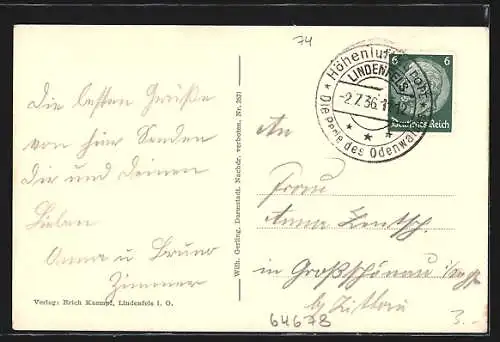 74
Höhenluftkurort
LINDENFELS
-2.7.36.
Die Perle des Odenwaldes
6 6
Deutsches Reich
Die besten Grüße
von hier senden
Dir und Deinen
Lieben
Anna u Bruno
Zimmer
Verlag: Erich Kammd, Lindenfels i. O.
Wilh. Gerling, Darmstadt. Nachdr. verboten. Nr. 2831
An
Frau
Anna
in Großschönau i/
by Zittau
64678
3.-